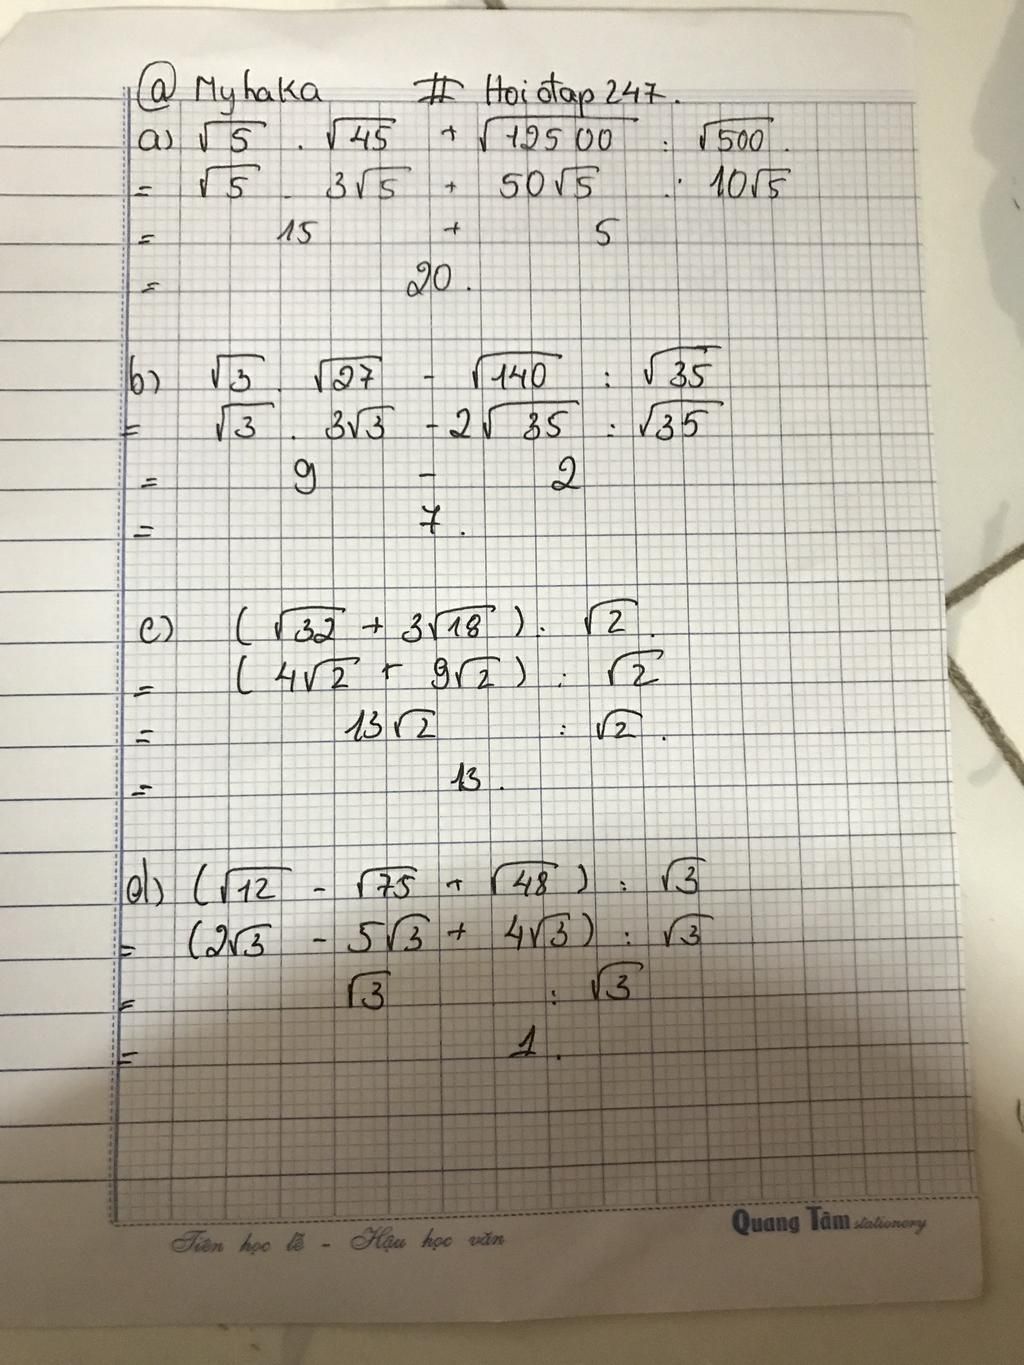 @ Myhaka # Hoidap 247.
a) √5 . √45 + √12500 : √500.
= √5 . 3√5 + 50√5 : 10√5
= 15 + 5
= 20.
b) √3 . √27 - √140 : √35
= √3 . 3√3 - 2√35 : √35
= 9 - 2
= 7.
c) (√32 + 3√18) : √2.
= (4√2 + 9√2) : √2
= 13√2 : √2.
= 13.
d) (√12 - √75 + √48) : √3
= (2√3 - 5√3 + 4√3) : √3
= √3 : √3
= 1.
Tiên học lễ - Hậu học văn
Quang Tâm stationery